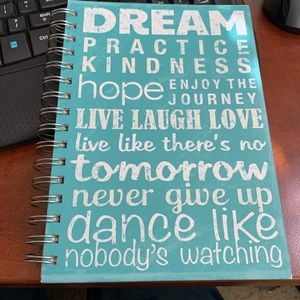 DREAM
PRACTICE
KINDNESS
hope ENJOY THE JOURNEY
LIVE LAUGH LOVE
live like there's no
tomorrow
never give up
dance like
nobody's watching